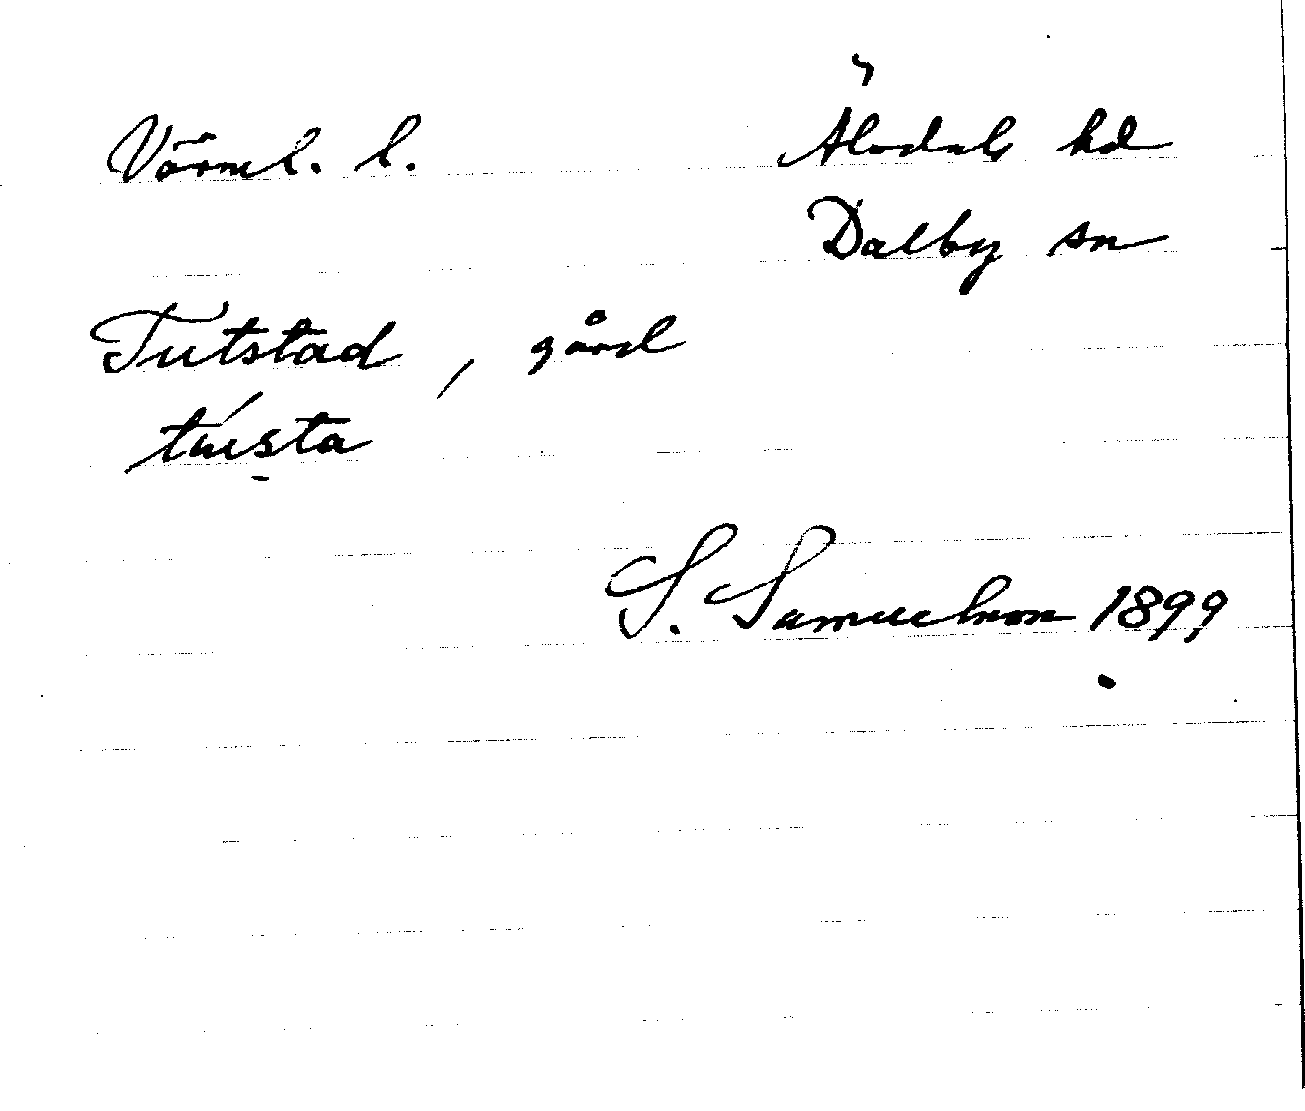 Värml. l.
Älvdals hd
Dalby sn
Tutstad, gård
tústa
S. Samuelsson 1899